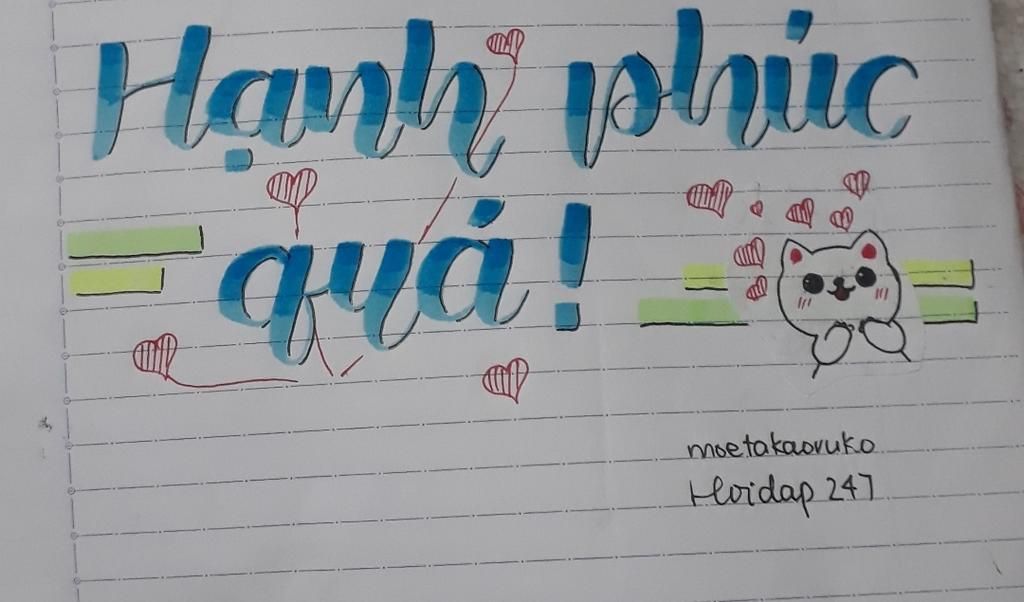 Hạnh phúc
quá!
moetakaoruko
Hoidap 247